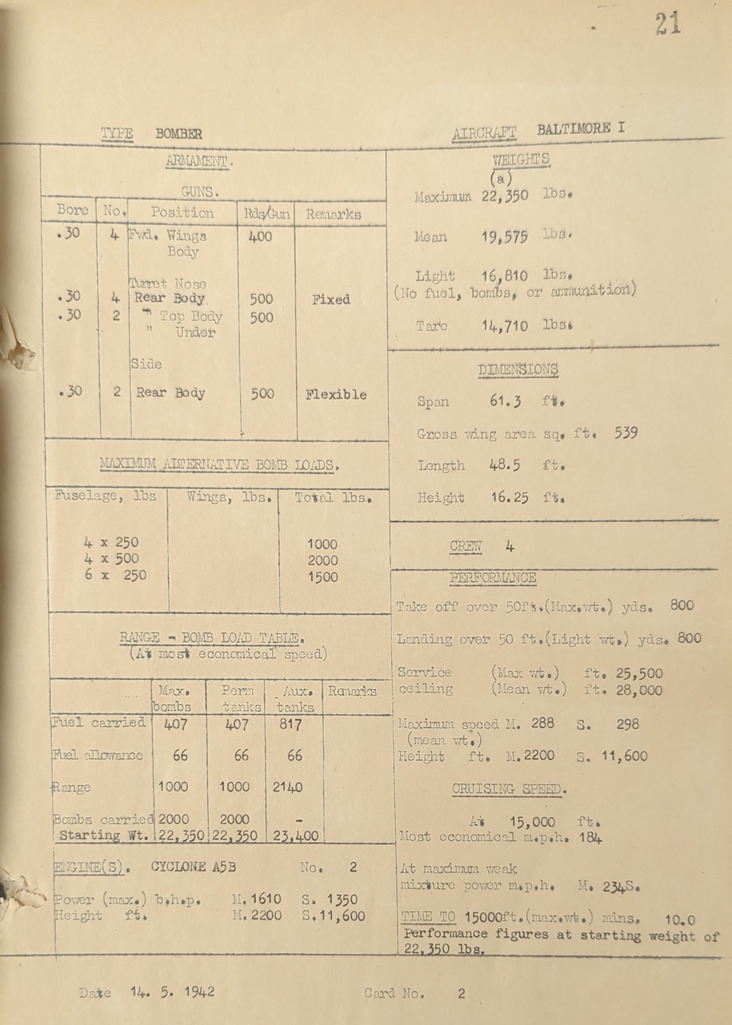 21
TYPE BOMBER
AIRCRAFT BALTIMORE I
ARMAMENT.
GUNS.
Bore No. Position Rds/Gun Remarks
.30 4 Fwd. Wings 400
Body
Turret Nose
.30 4 Rear Body 500 Fixed
.30 2 " Top Body 500
" Under
Side
.30 2 Rear Body 500 Flexible
MAXIMUM ALTERNATIVE BOMB LOADS.
Fuselage, lbs Wings, lbs. Total lbs.
4 x 250 1000
4 x 500 2000
6 x 250 1500
RANGE - BOMB LOAD TABLE.
(At most economical speed)
Max. bombs Perm tanks Aux. tanks Remarks
Fuel carried 407 407 817
Fuel allowance 66 66 66
Range 1000 1000 2140
Bombs carried 2000 2000 -
Starting Wt. 22,350 22,350 23,400
ENGINE(S). CYCLONE A5B No. 2
Power (max.) b.h.p. M. 1610 S. 1350
Height ft. M. 2200 S. 11,600
WEIGHTS
(a)
Maximum 22,350 lbs.
Mean 19,575 lbs.
Light 16,810 lbs.
(No fuel, bombs, or ammunition)
Tare 14,710 lbs.
DIMENSIONS
Span 61.3 ft.
Gross wing area sq. ft. 539
Length 48.5 ft.
Height 16.25 ft.
CREW 4
PERFORMANCE
Take off over 50ft.(Max.wt.) yds. 800
Landing over 50 ft.(Light wt.) yds. 800
Service (Max wt.) ft. 25,500
ceiling (Mean wt.) ft. 28,000
Maximum speed M. 288 S. 298
(mean wt.)
Height ft. M.2200 S. 11,600
CRUISING SPEED.
At 15,000 ft.
Most economical m.p.h. 184
At maximum weak
mixture power m.p.h. M. 234S.
TIME TO 15000ft.(max.wt.) mins. 10.0
Performance figures at starting weight of
22,350 lbs.
Date 14. 5. 1942
Card No. 2